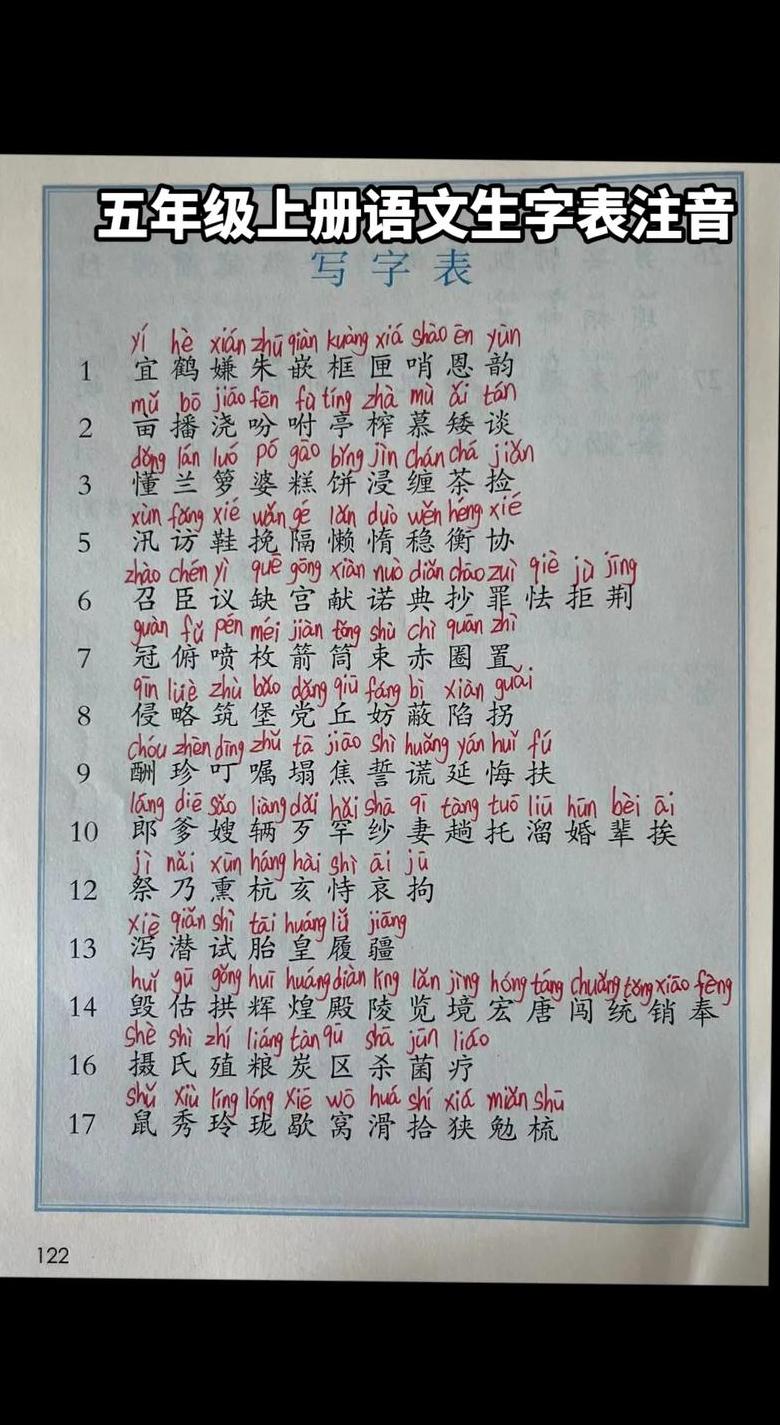 五年级上册语文生字表注音
写字表
yí hè xián zhū qiàn kuàng xiá shào ēn yùn
1 宜鹤嫌朱嵌框匣哨恩韵
mǔ bō jiāo fēn fù tíng zhà mù ǎi tán
2 亩播浇吩咐亭榨慕矮谈
dǒng lán luó pó gāo bǐng jìn chán chá jiǎn
3 懂兰箩婆糕饼浸缠茶捡
xùn fǎng xié wǎn gé lǎn duò wěn héng xié
5 汛访鞋挽隔懒惰稳衡协
zhào chén yì quē gōng xiàn nuò diǎn chāo zuì qiè jù jīng
6 召臣议缺宫献诺典抄罪怯拒荆
guàn fǔ pén méi jiàn tǒng shù chì quān zhì
7 冠俯喷枚箭筒束赤圈置
qīn lüè zhù bǎo dǎng qiū fáng bì xiàn guǎi
8 侵略筑堡党丘妨蔽陷拐
chóu zhēn dīng zhǔ tā jiāo shì huǎng yán huǐ fú
9 酬珍叮嘱塌焦誓谎延悔扶
láng diē sǎo liàng dǎi hǎi shā qī tàng tuō liū hūn bèi āi
10 郎爹嫂辆歹罕纱妻趟托溜婚辈挨
jì nǎi xūn háng hài shì āi jū
12 祭乃熏杭亥恃哀拘
xiè qiǎn shì tāi huáng lǚ jiāng
13 泻潜试胎皇履疆
huǐ gū gǒng huī huáng diàn líng lǎn jìng hóng táng chuǎng tǒng xiāo fèng
14 毁估拱辉煌殿陵览境宏唐闯统销奉
shè shì zhí liáng tàn qū shā jūn liáo
16 摄氏殖粮炭区杀菌疗
shǔ xiù líng lóng xiē wō huá shí xiá miǎn shū
17 鼠秀玲珑歇窝滑拾狭勉梳
122